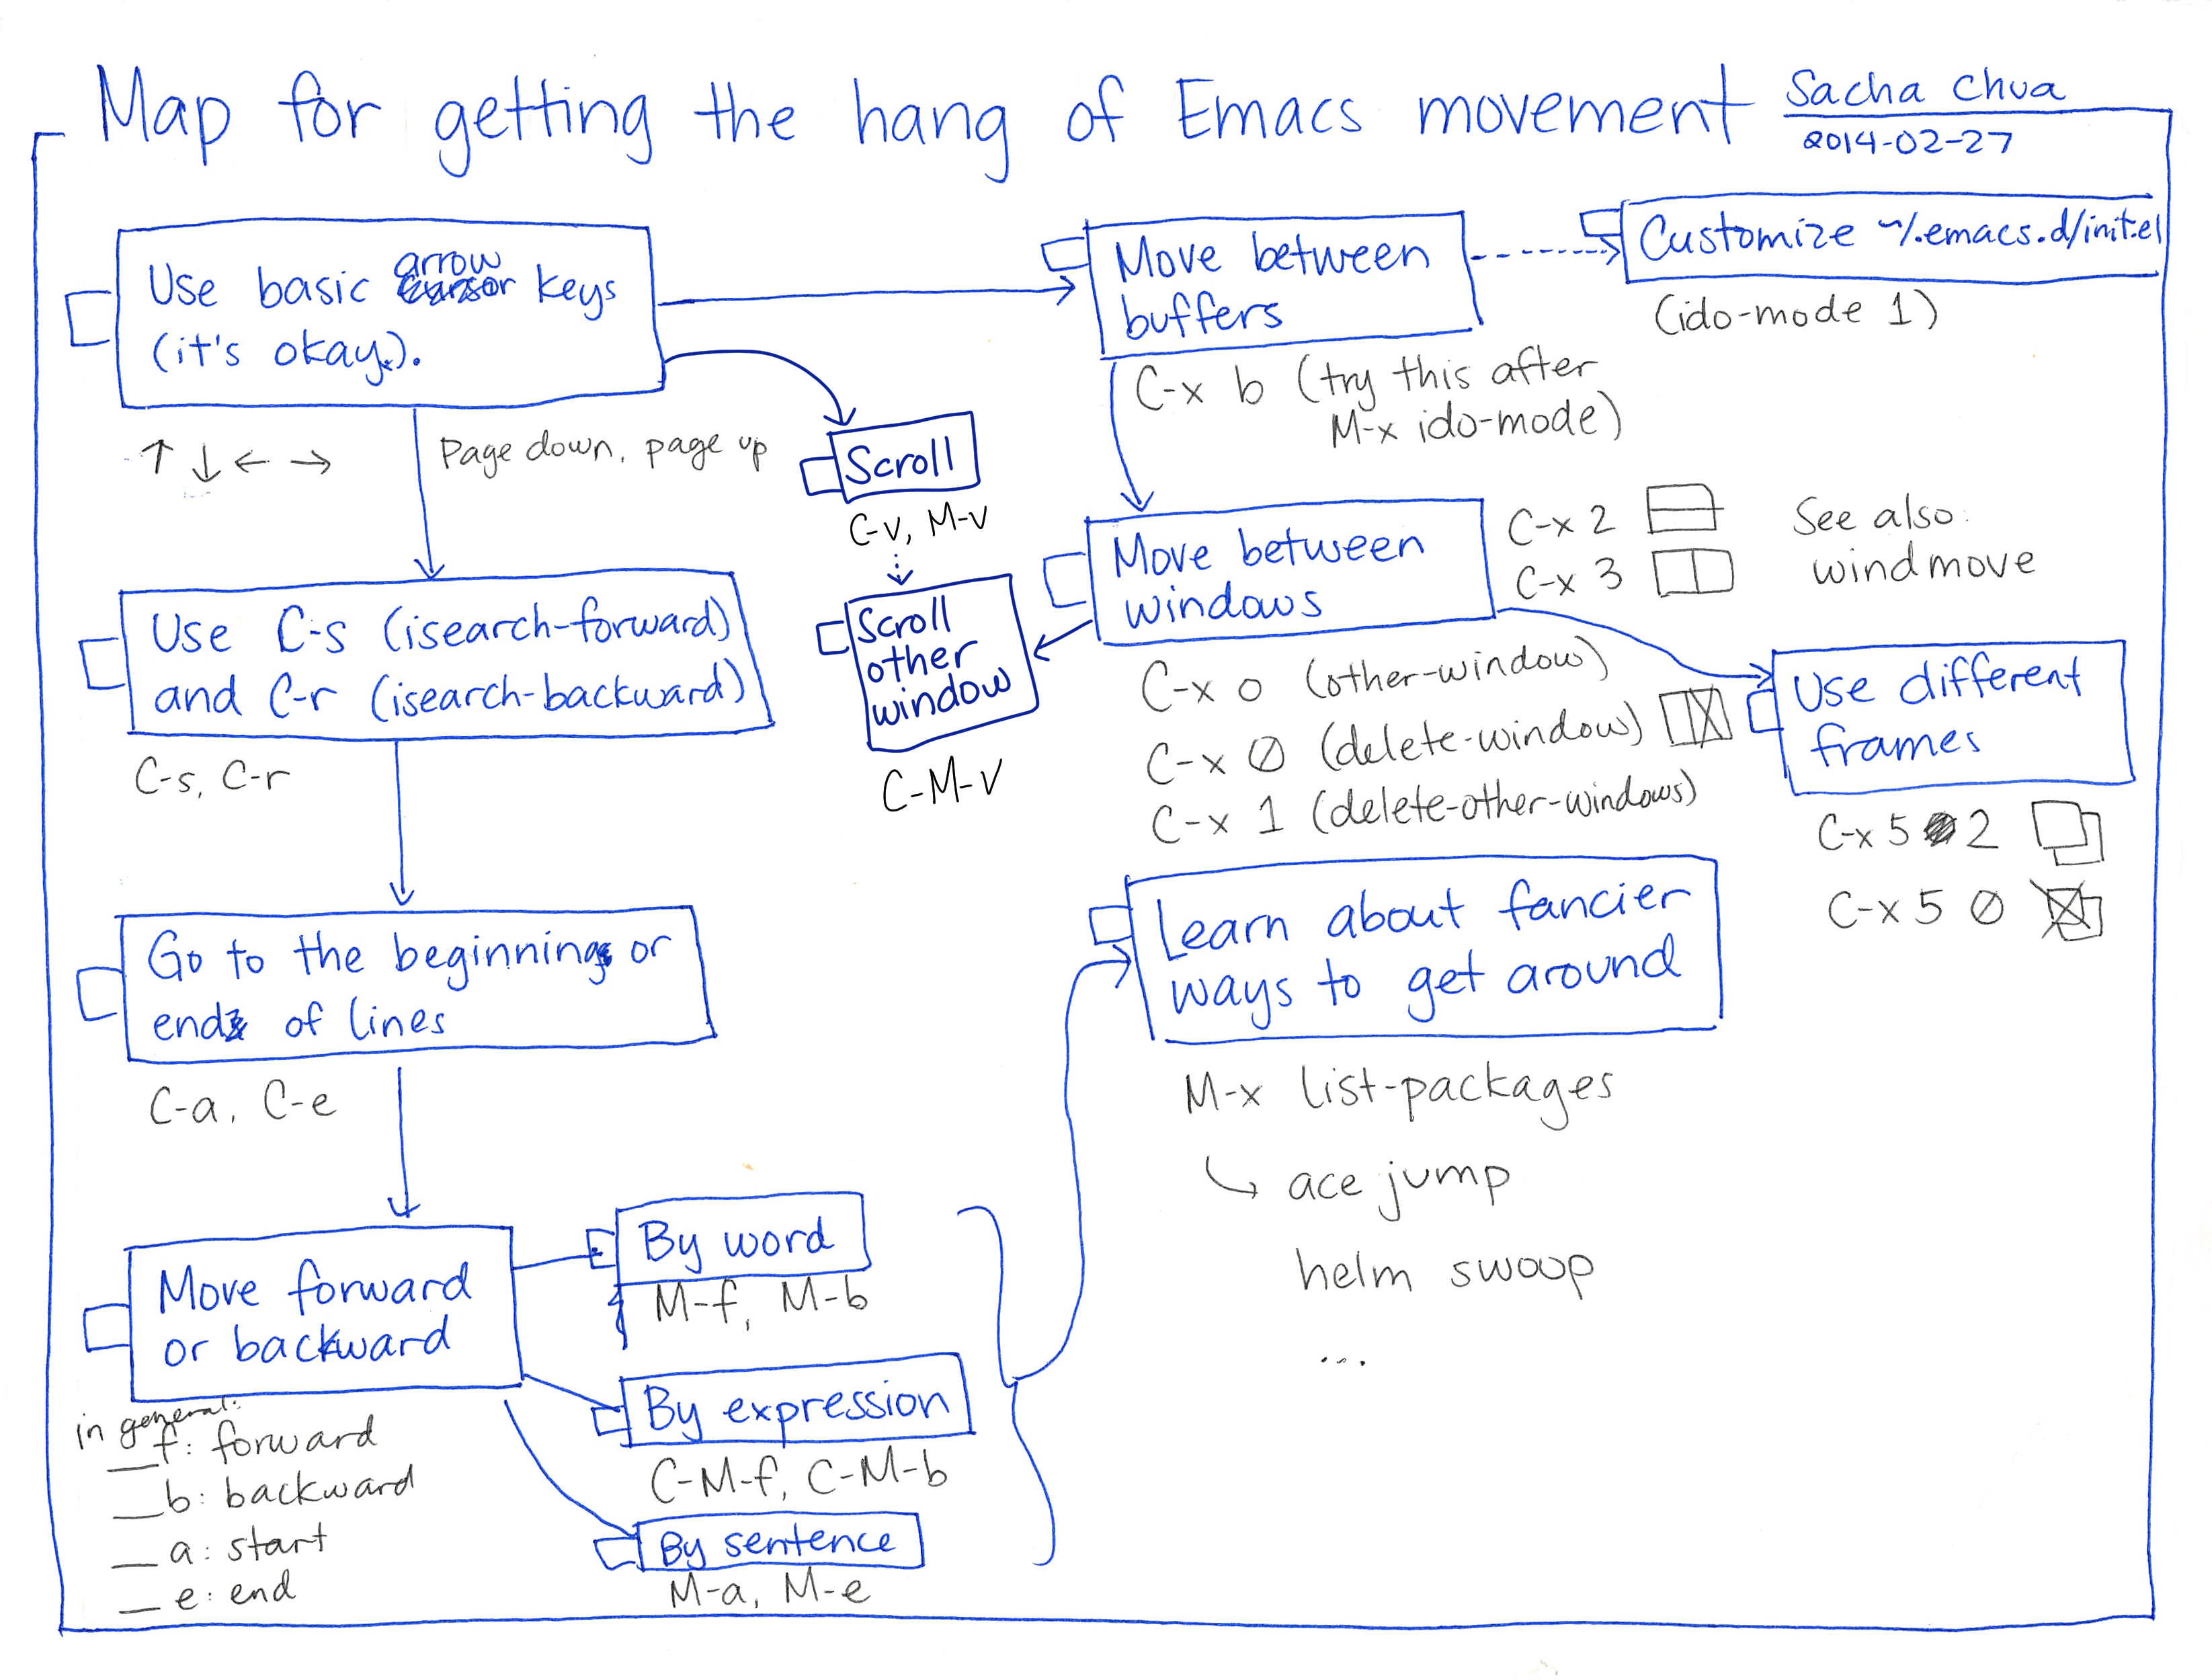 Map for getting the hang of Emacs movement
Sacha Chua
2014-02-27
Use basic arrow keys
(it's okay.).
↑ ↓ ← →
Page down, page up
Scroll
C-v, M-v
Scroll
other
window
C-M-v
Use C-s (isearch-forward)
and C-r (isearch-backward)
C-s, C-r
Go to the beginning or
end of lines
C-a, C-e
Move forward
or backward
in general:
__f: forward
__b: backward
__a: start
__e: end
By word
M-f, M-b
By expression
C-M-f, C-M-b
By sentence
M-a, M-e
Move between
buffers
C-x b (try this after
M-x ido-mode)
Customize ~/.emacs.d/init.el
(ido-mode 1)
Move between
windows
C-x 2
C-x 3
See also:
windmove
C-x o (other-window)
C-x 0 (delete-window)
C-x 1 (delete-other-windows)
Use different
frames
C-x 5 2
C-x 5 0
Learn about fancier
ways to get around
M-x list-packages
↳ ace jump
helm swoop
...